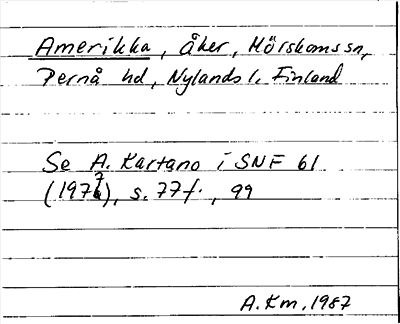 Amerikka, åker, Mörskoms sn,
Pernå hd, Nylands l, Finland
Se A. Kartano i SNF 61
(1977), s. 77f., 99
A.Km.1987